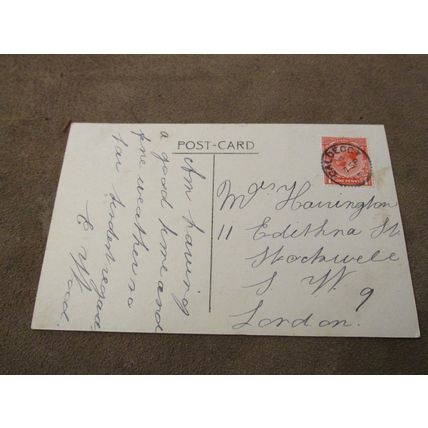 POST-CARD
Am having
a good time and
fine weather so
far kindest regards
E. Wood.
CALDECOT
ONE PENNY
Mrs Harrington
11 Edithna St
Stockwell
S. W. 9
London.